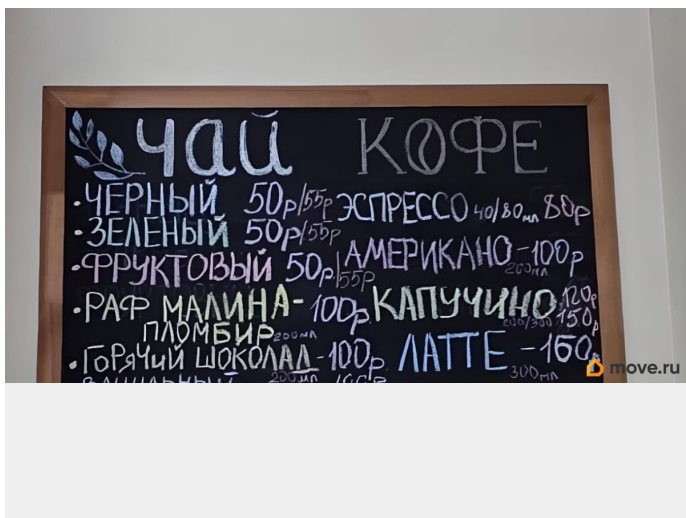 чай
•ЧЕРНЫЙ 50р/55р
•ЗЕЛЕНЫЙ 50р/55р
•ФРУКТОВЫЙ 50р/55р
•РАФ МАЛИНА- 100р
ПЛОМБИР 200мл
•ГОРЯЧИЙ ШОКОЛАД-100р
200мл
КОФЕ
ЭСПРЕССО 40/80мл 80р
АМЕРИКАНО-100р
200мл
КАПУЧИНО 120р
200/300 150р
ЛАТТЕ -160р
300мл
move.ru